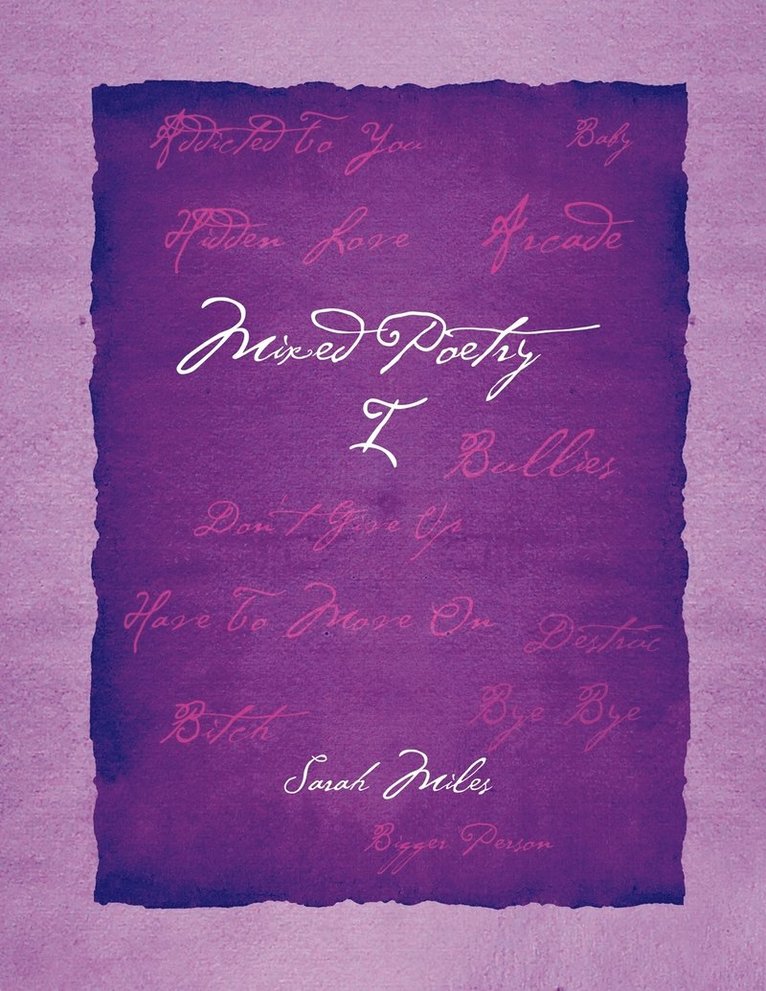 Addicted To You Baby
Hidden Love Arcade
Mixed Poetry
I
Bullies
Don't Give Up
Have To Move On
Destruc
Bye Bye
Bitch
Sarah Miles
Bigger Person